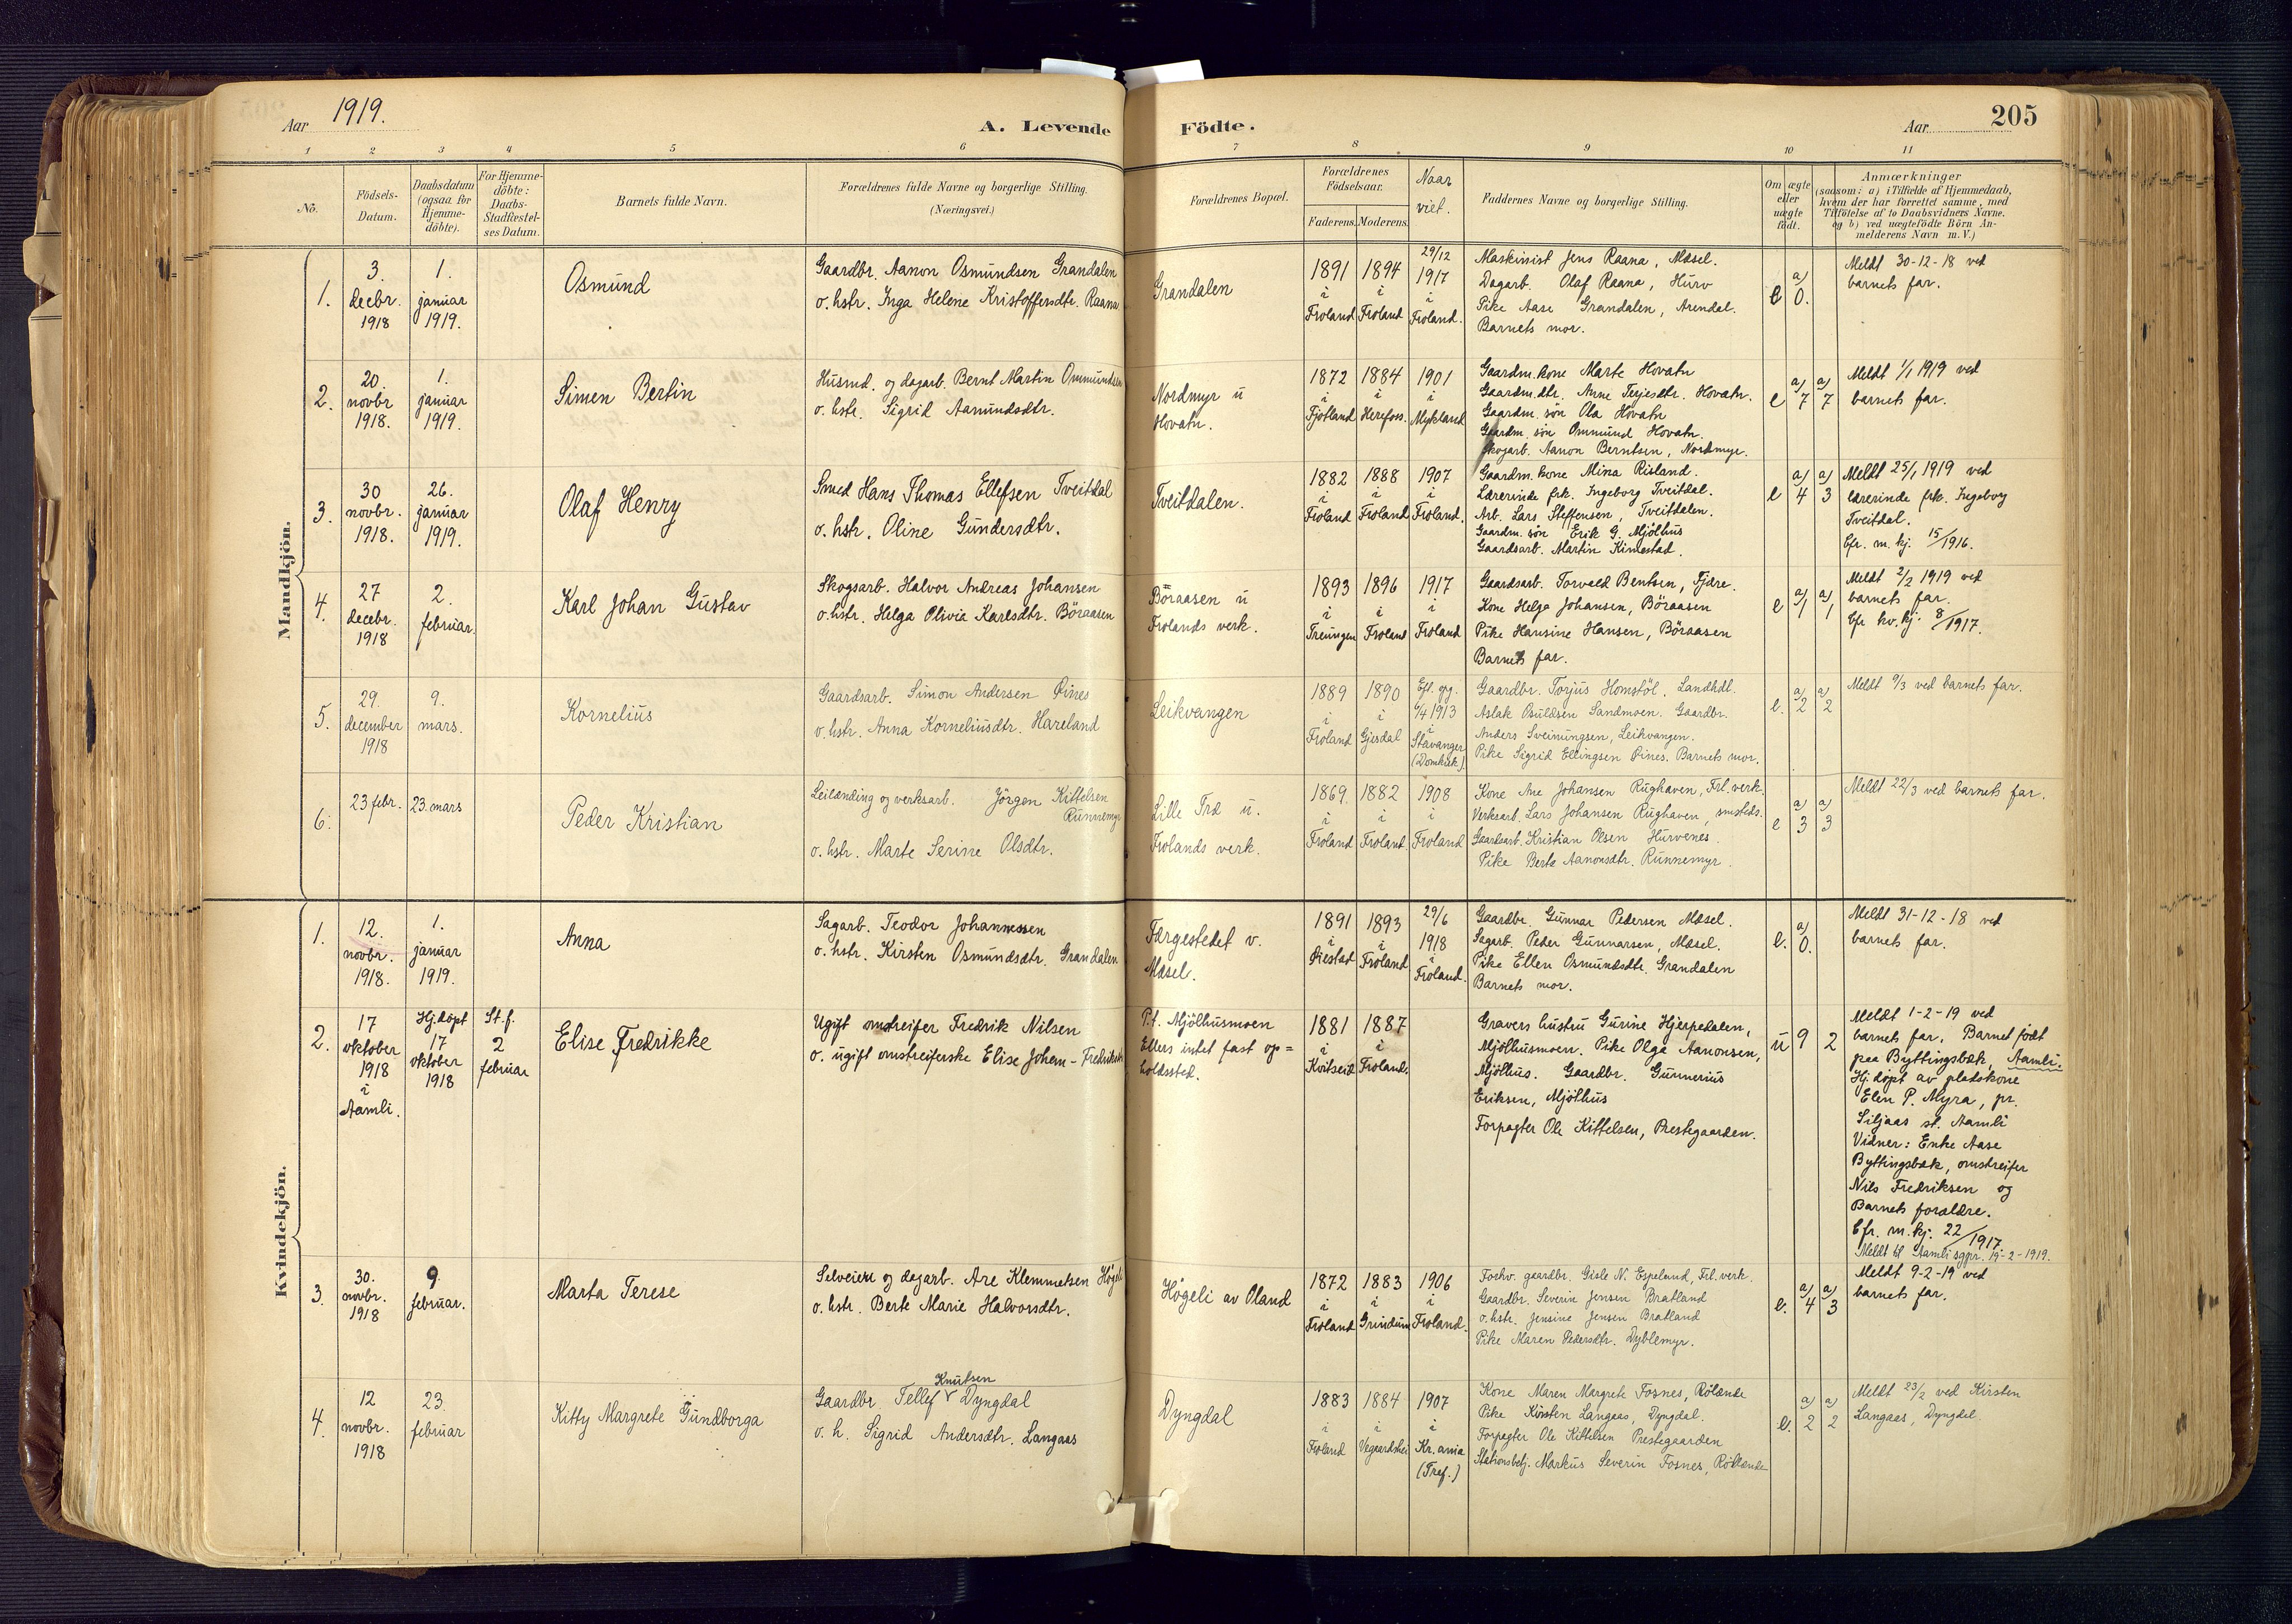 Aar 1919.
A. Levende Födte.
Aar 205
1 2 3 4 5 6 7 8 9 10 11
No.
Födsels-
Datum.
Daabsdatum
(ogsaa for
Hjemme-
döbte).
For Hjemme-
döbte:
Daabs-
Stadfæstel-
ses Datum.
Barnets fulde Navn.
Forældrenes fulde Navne og borgerlige Stilling.
(Næringsvei.)
Forældrenes Bopæl.
Forældrenes
Födselsaar.
Faderens. Moderens.
Naar
viet.
Faddernes Navne og borgerlige Stilling.
Om ægte
eller
uægte
födt.
Anmærkninger
(saasom: a) i Tilfælde af Hjemmedaab,
hvem der har forrettet samme, med
Tilföielse af to Daabsvidners Navne,
og b) ved uægtefödte Börn An-
melderens Navn m. V.)
Mandkjön.
1.
3.
decbr.
1918
1.
januar
1919.
Osmund
Gaardbr. Aanon Osmundsen Grandalen
o. hstr. Inga Helene Kristoffersdtr. Raana
Grandalen
1891
i
Froland
1894
i
Froland
29/12
1917
i
Froland.
Maskinist Jens Raana, Mæsel.
Dagarb. Olaf Raana, Hurv
Pike Aase Grandalen, Arendal.
Barnets mor.
e
a)
0.
Meldt 30-12-18 ved
barnets far.
2.
20
novbr
1918.
1.
januar
1919.
Simen Bertin
Husmd. og dagarb. Bernt Martin Ommundsen
o. hstr. Sigrid Aanundsdtr.
Nordmyr u
Hovatn.
1872
i
Fjotland
1884
i
Herefoss.
1901
i
Mykland
Gaardm. kone Marte Hovatn
Gaardm. dtr. Anne Terjesdtr. Hovatn.
Gaardm. søn Ola Hovatn
Gaardm. søn Ommund Hovatn.
Skogarb. Aanon Berntsen, Nordmyr.
e
a) a)
7 7
Meldt 1/1 1919 ved
barnets far.
3.
30
novbr.
1918.
26.
januar
1919.
Olaf Henry
Smed Hans Thomas Ellefsen Tveitdal
o. hstr. Oline Gundersdtr.
Tveitdalen.
1882
i
Froland
1888
i
Froland
1907
i
Froland.
Gaardm. kone Mina Risland.
Lærerinde frk. Ingeborg Tveitdal.
Arb. Lars Steffensen, Tveitdalen.
Gaardm. søn Erik G. Mjölhus
Gaardsarb. Martin Kimestad.
e
a) a)
4 3
Meldt 25/1 1919 ved
lærerinde frk. Ingeborg
Tveitdal.
Cfr. m. kj. 15/1916.
4.
27
decbr.
1918
2.
februar.
Karl Johan Gustav
Skogsarb. Halvor Andreas Johansen
o. hstr. Helga Olivia Karlsdtr. Böraasen
Böraasen u
Frolands verk.
1893
i
Treungen
1896
i
Froland
1917
i
Froland
Gaardsarb. Torvald Bentsen, Fjære.
Kone Helga Johansen, Böraasen
Pike Hansine Hansen, Böraasen
Barnets far.
e
a) a)
1 1
Meldt 2/2 1919 ved
barnets far.
Cfr kv. kj. 8/1917.
5.
29.
december
1918
9.
mars.
Kornelius
Gaardsarb. Simon Andersen Øines
o. hstr. Anna Korneliusdtr. Hareland
Leikvangen
1889
i
Froland
1890
i
Gjesdal
Efl. opg.
1/4 1913
i
Stavanger
(Domkirk.)
Gaardbr. Torjus Homstöl. Landhdl.
Aslak Osuldsen Sandmoen. Gaardbr.
Anders Sveinungsen, Leikvangen.
Pike Sigrid Ellingsen Øines. Barnets mor.
e.
a) a)
2 2
Meldt 9/3 ved barnets far.
6.
23 febr.
23. mars
Peder Kristian
Leilænding og verksarb. Jörgen Kittelsen
Runnemyr
o. hstr. Marte Serine Olsdtr.
Lille Træ u.
Frolands verk.
1869
i
Froland
1882
i
Froland.
1908
i
Froland
Kone Ane Johansen Rughaven, Frl. verk.
Verksarb. Lars Johansen Rughaven, smsteds.
Gaardsarb. Kristian Olsen Hurvenes.
Pike Berte Aanonsdtr. Runnemyr.
e
a) a)
3 3
Meldt 22/3 ved barnets far.
Kvindekjön.
1.
12.
novbr.
1918.
1.
januar
1919.
Anna
Sagarb. Teodor Johannessen
o. hstr. Kirsten Osmundsdtr. Grandalen
Færgestedet v.
Mæsel.
1891
i
Øiestad
1893
i
Froland
29/6
1918
i
Froland.
Gaardbr. Gunnar Pedersen Mæsel.
Sagarb. Peder Gunnarsen, Mæsel.
Pike Ellen Osmundsdtr. Grandalen
Barnets mor.
e.
a)
0.
Meldt 31-12-18 ved
barnets far.
2.
17
oktober
1918
i
Aamli.
Hj. døpt
17
oktober
1918
St. f.
2
februar
Elise Fredrikke
Ugift omstreifer Fredrik Nilsen
o. ugift omstreiferske Elise Johem-Fredriksdtr
P.t. Mjölhusmoen
Ellers intet fast op=
holdssted.
1881
i
Kvitseid
1887
i
Froland.
Gravers hustru Gurine Hjerpedalen,
Mjölhusmoen. Pike Olga Aanonsen,
Mjölhus. Gaardbr. Gunnerius
Eriksen, Mjölhus
Forpagter Ole Kittelsen, Prestegaarden.
u 9 2
Meldt 1-2-19 ved
barnets far. Barnet født
paa Byttingsbæk, Aamli.
Hj. døpt av pladskone
Elen P. Myra, pr.
Siljaas st. Aamli
Vidner: Enke Aase
Byttingsbæk, omstreifer
Nils Fredriksen og
Barnets forældre.
Cfr. m. kj. 22/1917.
Meldt til Aamli sgpr. 19-2-1919.
3.
30.
novbr.
1918
9.
februar.
Marta Terese
Selveier og dagarb. Are Klemmetsen Högeli
o. hstr. Berte Marie Halvorsdtr.
Högeli av Oland
1872
i
Froland
1883
i
Grindum
1906
i
Froland.
Forhv. gaardbr. Gisle N. Espeland, Frl. verk.
Gaardbr. Severin Jensen Bratland
o. hstr. Jensine Jensen Bratland
Pike Maren Pedersdtr. Dyblemyr.
e.
a) a)
4 3
Meldt 9-2-19 ved
barnets far.
4.
12
novbr.
1918
23.
februar
Kitty Margrete Gundborga
Knutsen
Gaardbr Tellef Dyngdal
o. h. Sigrid Andersdtr. Langaas
Dyngdal
1883
i
Froland
1884
i
Vegaardshei
1907
i
Kr.ania
(Tref.)
Kone Maren Margrete Fosnes, Rølande
Pike Kirsten Langaas, Dyngdal.
Forpagter Ole Kittelsen Prestegaarden
Stationsbetj. Markus Severin Fosnes, Røllande
e.
a) a)
2 2
Meldt 23/2 ved Kirsten
Langaas, Dyngdal